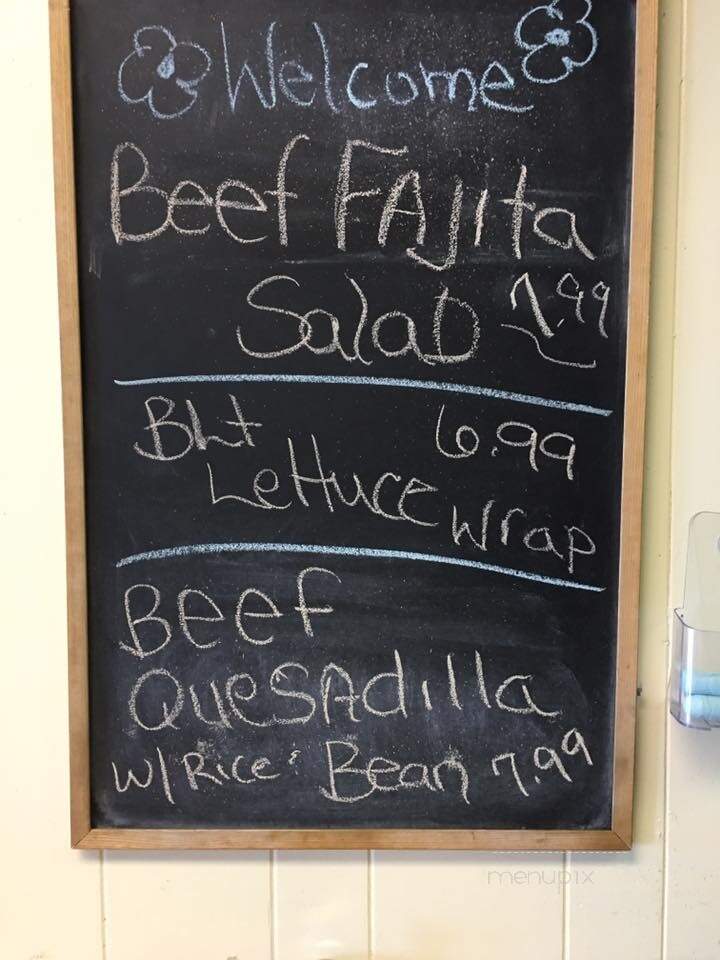 Welcome
Beef FAjita
Salad 7.99
Blt 6.99
Lettuce wrap
Beef
QueSAdilla
w/ Rice & Bean 7.99
menupix